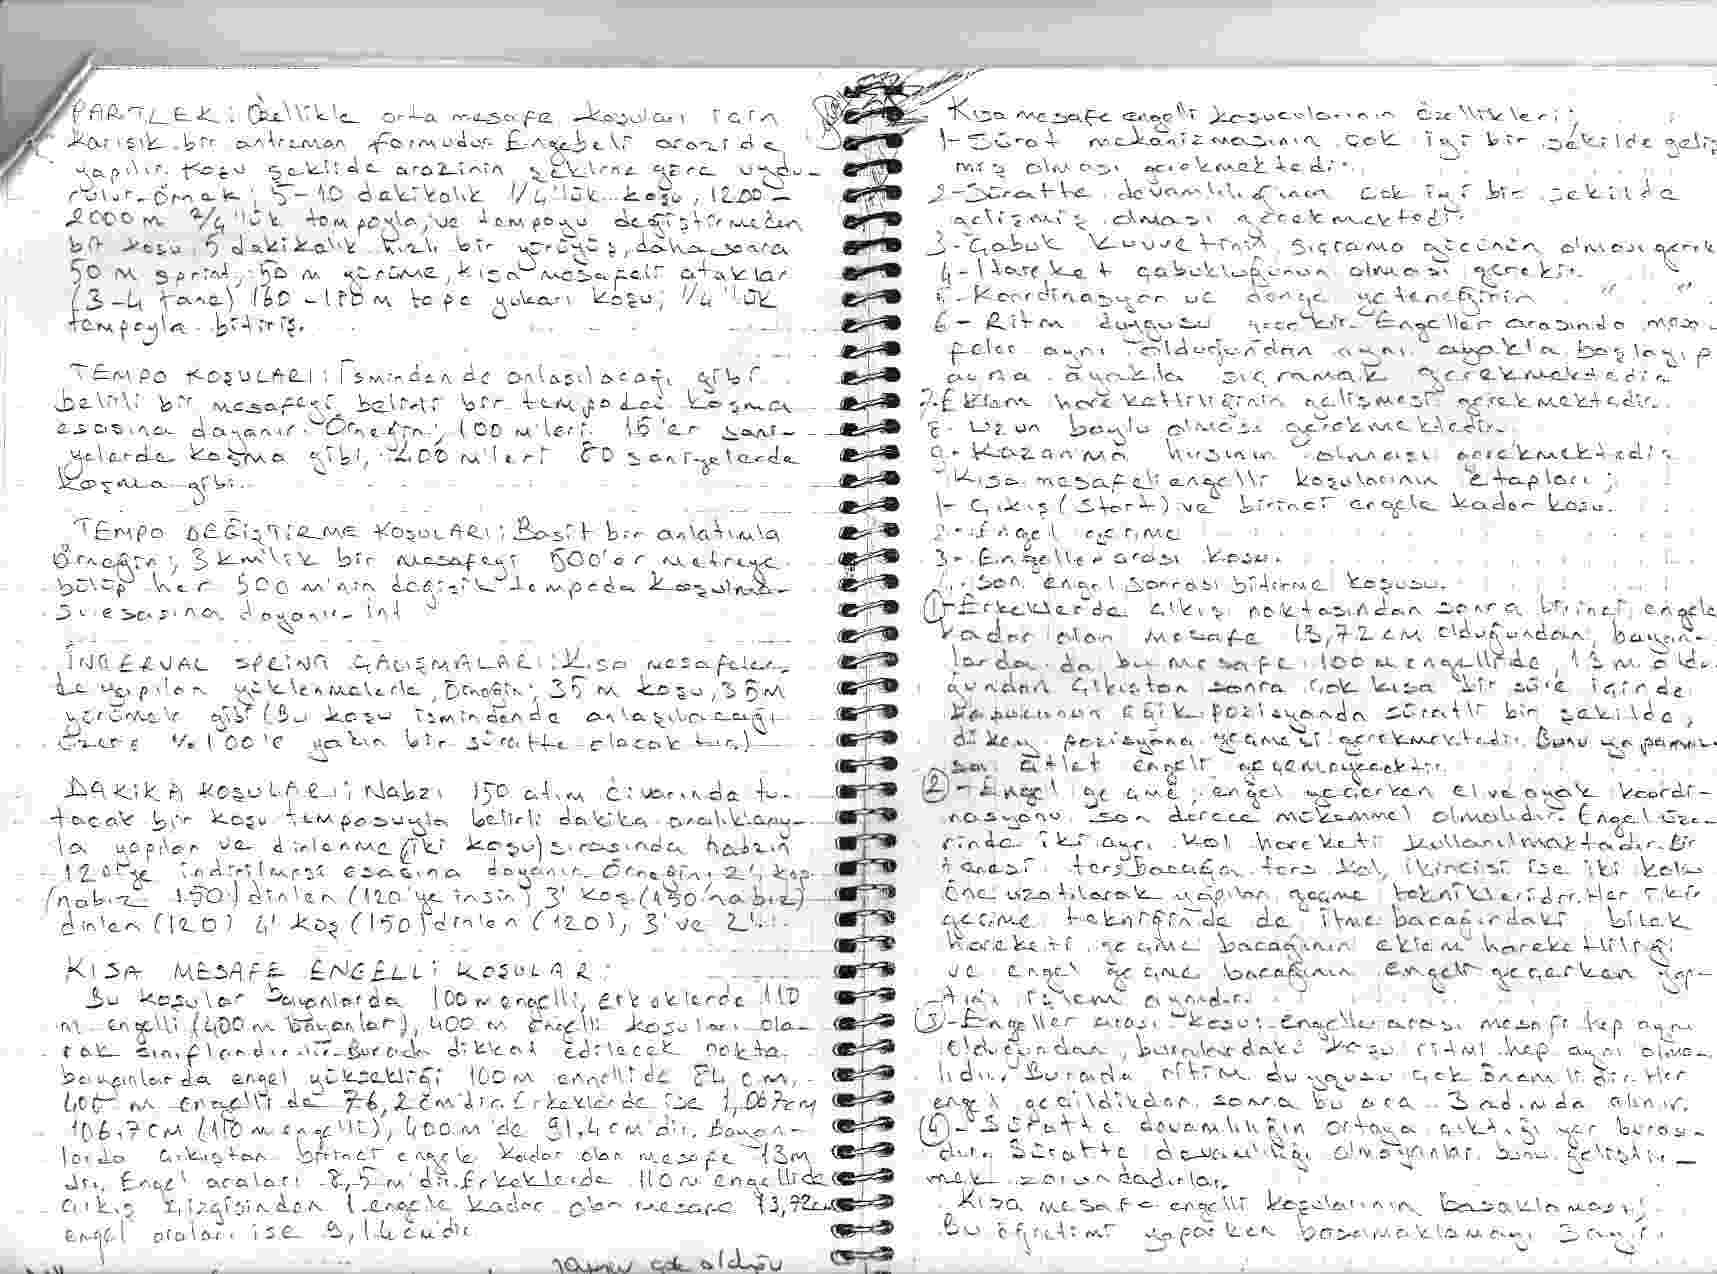 PARTLEK: Özellikle orta mesafe koşuları için
karışık bir antreman formudur. Engebeli arazide
yapılır. Koşu şekilde arazinin şekline göre uydu-
rulur. Örnek; 5-10 dakikalık 1/4'lük koşu, 1200-
2000 m 2/4'lük tempoyla, ve tempoyu değiştirmeden
bir koşu, 5 dakikalık hızlı bir yürüyüş, daha sonra
50 m sprint, 50 m yürüme, kısa mesafeli ataklar
(3-4 tane) 160-180 m tepe yukarı koşu; 1/4'lük
tempoyla bitiriş.
TEMPO KOŞULARI: İsmindende anlaşılacağı gibi
belirli bir mesafeyi belirli bir tempoda koşma
esasına dayanır. Örneğin; 100 m'leri 15'er sani-
yelerde koşma gibi, 400 m'leri 80 saniyelerde
koşma gibi.
TEMPO DEĞİŞTİRME KOŞULARI; Basit bir anlatımla
Örneğin; 3 km'lik bir mesafeyi 500'er metreye
bölüp her 500 m'nin değişik tempoda koşulma-
sı esasına dayanır. İnt
İNTERVAL SPRİNT ÇALIŞMALARI: Kısa mesafeler-
de yapılan yüklenmelerle, Örneğin; 35 m koşu, 35 m
yürümek gibi (Bu koşu ismindende anlaşılacağı
üzere %100'e yakın bir süratte olacaktır.)
DAKİKA KOŞULARI; Nabzı 150 atım civarında tu-
tacak bir koşu temposuyla belirli dakika aralıklarıy-
la yapılan ve dinlenme (iki koşu) sırasında nabzın
120'ye indirilmesi esasına dayanır. Örneğin; 2' koş
(nabız 150) dinlen (120'ye insin) 3' koş (150 nabız)
dinlen (120) 4' koş (150) dinlen (120), 3' ve 2'...
KISA MESAFE ENGELLİ KOŞULAR:
Bu koşular bayanlarda 100 m engelli, erkeklerde 110
m engelli (400 m bayanlar), 400 m engelli koşuları ola-
rak sınıflandırılır. Burada dikkat edilecek nokta
bayanlarda engel yüksekliği 100 m engellide 84 cm,
400 m engelli de 76,2 cm'dir. Erkeklerde ise 1,067 cm
106,7 cm (110 m engelli), 400 m'de 91,4 cm'dir. Bayan-
larda çıkıştan birinci engele kadar olan mesafe 13 m
dir. Engel araları 8,5 m'dir. Erkeklerde 110 m engellide
çıkış çizgisinden 1. engele kadar olan mesafe 13,72 cm
engel araları ise 9,14 cm'dir
çok olduğu
Kısa mesafe engelli koşucularının özellikleri;
1- Sürat mekanizmasının çok iyi bir şekilde geliş
miş olması gerekmektedir.
2- Süratte devamlılığının çok iyi bir şekilde
gelişmiş olması gerekmektedir.
3- Çabuk kuvvetinin, sıçrama gücünün olması gerek
4- Hareket çabukluğunun olması gerekir.
5- Koordinasyon ve denge yeteneğinin " "
6- Ritm duygusu gerekir. Engeller arasında mesa-
feler aynı olduğundan aynı ayakla başlayıp
aynı ayakla sıçramak gerekmektedir
7- Eklem hareketliliğinin gelişmesi gerekmektedir.
8- Uzun boylu olması gerekmektedir.
9- Kazanma hırsının olması gerekmektedir
Kısa mesafeli engelli koşularının etapları;
1- Çıkış (Start) ve birinci engele kadar koşu.
2- Engel geçme
3- Engeller arası koşu.
4- son engel sonrası bitirme koşusu.
1- Erkeklerde çıkış noktasından sonra birinci engele
kadar olan mesafe 13,72 cm olduğundan, bayan-
larda da bu mesafe 100 m engellide, 13 m oldu-
ğundan çıkıştan sonra çok kısa bir süre içinde
koşucunun eğik pozisyonda süratli bir şekilde,
dikey pozisyona geçmesi gerekmektedir. Bunu yapamaz-
sa atlet engeli geçemeyecektir.
2- Engel geçme; engel geçerken el ve ayak koordi-
nasyonu son derece mükemmel olmalıdır. Engel üze-
rinde iki ayrı kol hareketi kullanılmaktadır. Bir
tanesi ters bacağa ters kol, ikincisi ise iki kolu
öne uzatılarak yapılan geçme teknikleridir. Her iki
geçme tekniğinde de itme bacağındaki bilek
hareketi geçme bacağının eklem hareketliliği
ve engel geçme bacağının engeli geçerken yap-
tığı işlem aynıdır.
3- Engeller arası koşu; engeller arası mesafe hep aynı
olduğundan, buralardaki koşu ritmi hep aynı olma-
lıdır. Burada ritim duygusu çok önemlidir. Her
engel geçildikten sonra bu ara 3 adımda alınır.
4- Süratte devamlılığın ortaya çıktığı yer burası-
dır. Süratte devamlılığı olmayanlar bunu geliştir-
mek zorundadırlar.
Kısa mesafe engelli koşularının basaklaması;
Bu öğretimi yaparken basamaklamayı 3 ayrı